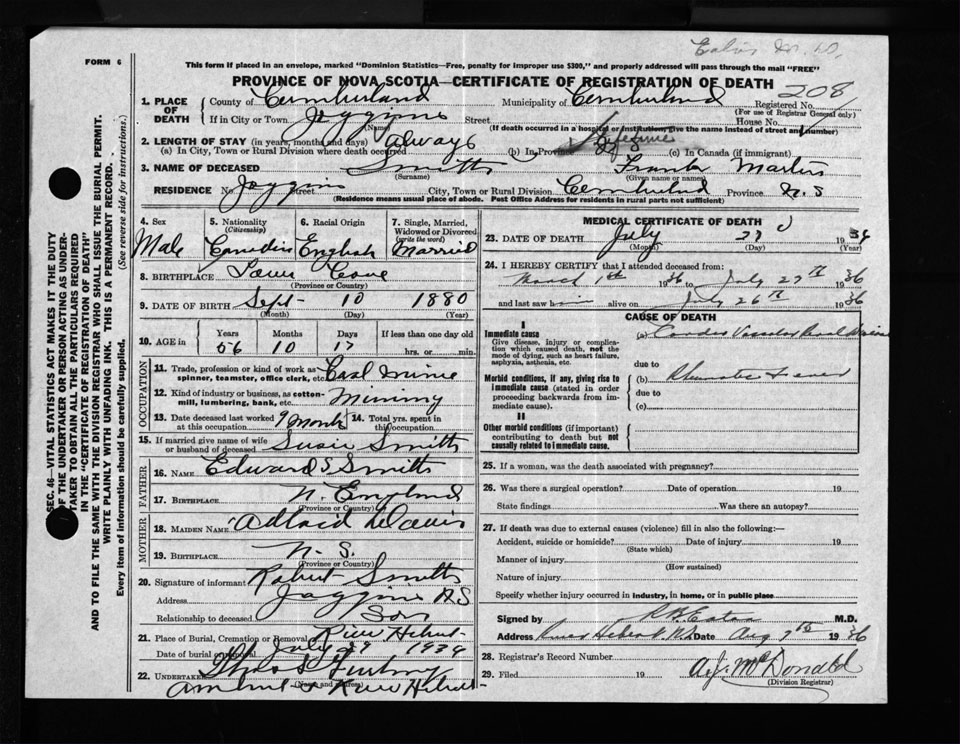 Eaton
FORM 6
This form if placed in an envelope, marked "Dominion Statistics—Free, penalty for improper use $300," and properly addressed will pass through the mail "FREE"
PROVINCE OF NOVA SCOTIA—CERTIFICATE OF REGISTRATION OF DEATH
208
1. PLACE OF DEATH
County of Cumberland Municipality of Cumberland Registered No.
(For use of Registrar General only)
If in City or Town Joggins Street House No.
(Name) (If death occurred in a hospital or institution, give the name instead of street and number)
2. LENGTH OF STAY (in years, months and days)
(a) In City, Town or Rural Division where death occurred always (b) In Province lifetime (c) In Canada (if immigrant)
3. NAME OF DECEASED Smith Frank Martin
(Surname) (Given name or names)
RESIDENCE No. Joggins Street City, Town or Rural Division Cumberland Province N.S
(Residence means usual place of abode. Post Office Address for residents in rural parts not sufficient)
4. Sex
Male
5. Nationality
(Citizenship)
Canadian
6. Racial Origin
English
7. Single, Married, Widowed or Divorced
(write the word)
Married
8. BIRTHPLACE Cove
(Province or Country)
9. DATE OF BIRTH Sept 10 1880
(Month) (Day) (Year)
10. AGE in
Years Months Days If less than one day old
56 10 17 hrs. or min.
OCCUPATION
11. Trade, profession or kind of work as spinner, teamster, office clerk, etc. Coal
12. Kind of industry or business, as cotton-mill, lumbering, bank, etc. Mining
13. Date deceased last worked at this occupation 9 Month
14. Total yrs. spent in this occupation
15. If married give name of wife or husband of deceased Susie Smith
FATHER
16. NAME Edward S Smith
17. BIRTHPLACE N. England
(Province or Country)
MOTHER
18. MAIDEN NAME Davis
19. BIRTHPLACE N.S.
(Province or Country)
20. Signature of informant Robert Smith
Address Joggins N S
Relationship to deceased Son
21. Place of Burial, Cremation or Removal River Hebert
Date of burial or removal July 29 1936
22. UNDERTAKER
(Name and Address)
Amherst & River Hebert
MEDICAL CERTIFICATE OF DEATH
23. DATE OF DEATH July 27 1936
(Month) (Day) (Year)
24. I HEREBY CERTIFY that I attended deceased from:
March 1st 1936 to July 27th 1936
and last saw him alive on July 26th 1936
CAUSE OF DEATH
I
Immediate cause
Give disease, injury or complication which caused death, not the mode of dying, such as heart failure, asphyxia, asthenia, etc.
(a) Cardio Vascular Renal
due to
Morbid conditions, if any, giving rise to immediate cause (stated in order proceeding backwards from immediate cause).
(b) Rheumatic Fever
due to
(c)
II
Other morbid conditions (if important) contributing to death but not causally related to immediate cause.
25. If a woman, was the death associated with pregnancy?
26. Was there a surgical operation? Date of operation 19
State findings Was there an autopsy?
27. If death was due to external causes (violence) fill in also the following:—
Accident, suicide or homicide? Date of injury 19
(State which)
Manner of injury
(How sustained)
Nature of injury
Specify whether injury occurred in industry, in home, or in public place
Signed by Eaton M.D.
Address River Hebert N.S. Date Aug 7th 1936
28. Registrar's Record Number
29. Filed 19 A.J. McDonald
(Division Registrar)
SEC. 46—VITAL STATISTICS ACT MAKES IT THE DUTY
OF THE UNDERTAKER OR PERSON ACTING AS UNDER-
TAKER TO OBTAIN ALL THE PARTICULARS REQUIRED
IN THE "CERTIFICATE OF REGISTRATION OF DEATH"
AND TO FILE THE SAME WITH THE DIVISION REGISTRAR WHO SHALL ISSUE THE BURIAL PERMIT.
WRITE PLAINLY WITH UNFADING INK. THIS IS A PERMANENT RECORD.
Every item of information should be carefully supplied. (See reverse side for instructions.)